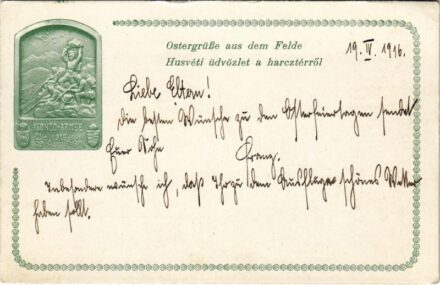 Ostergrüße aus dem Felde
Husvéti üdvözlet a harcztérről
19. IV. 1916.
ISONZO-ARMEE
1915
Liebe Eltern!
Die besten Wünsche zu den Osterfeiertagen sendet
Euer Sohn
Franz.
Insbesondere wünsche ich, daß Ihr zu dem Ausfluge schönes Wetter
haben sollt.